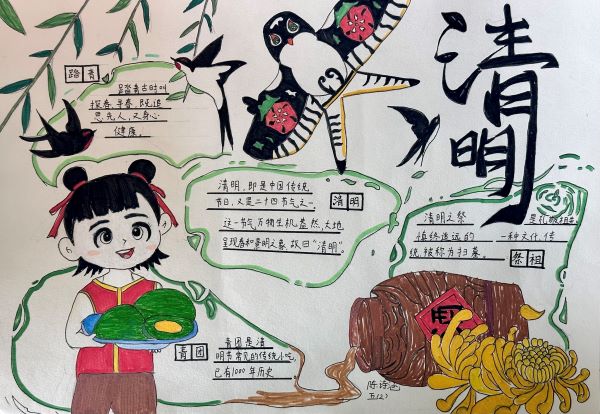 清明
踏青
踏青古时叫
探春、寻春、既追
思先人，又身心
健康。
清明，即是中国传统
节日，又是二十四节气之一，
这一节气，万物生机盎然，大地
呈现春和景明之象，故曰“清明”。
清明
清明之祭
是礼敬祖先、
慎终追远的
一种文化传
统，被称为扫墓。
祭祖
青团
青团是清
明节常见的传统小吃，
已有1000年历史
酒
五(2)